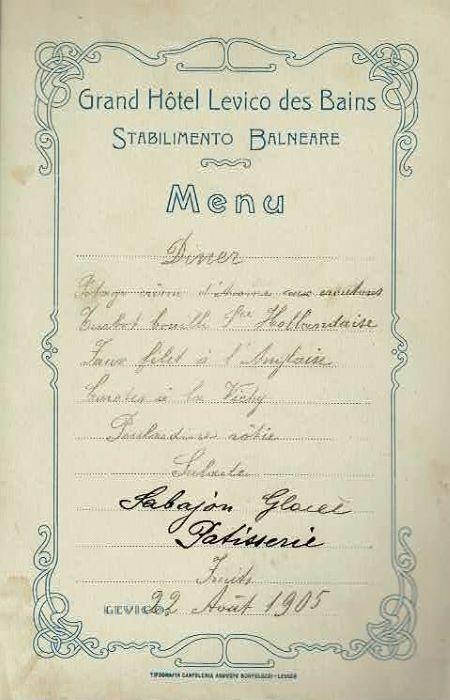 Grand Hôtel Levico des Bains
STABILIMENTO BALNEARE
Menu
Diner
Potage crème d'Avoine aux croutons
Turbot bouilli Sce Hollandaise
Faux filet à l'Anglaise
Carotes à la Vichy
rôtie
Salade
Sabajon Glacée
Patisserie
Fruits
LEVICO, 22 Août 1905
TIPOGRAFIA CARTOLERIA AUGUSTO BORTOLOZZI - LEVICO